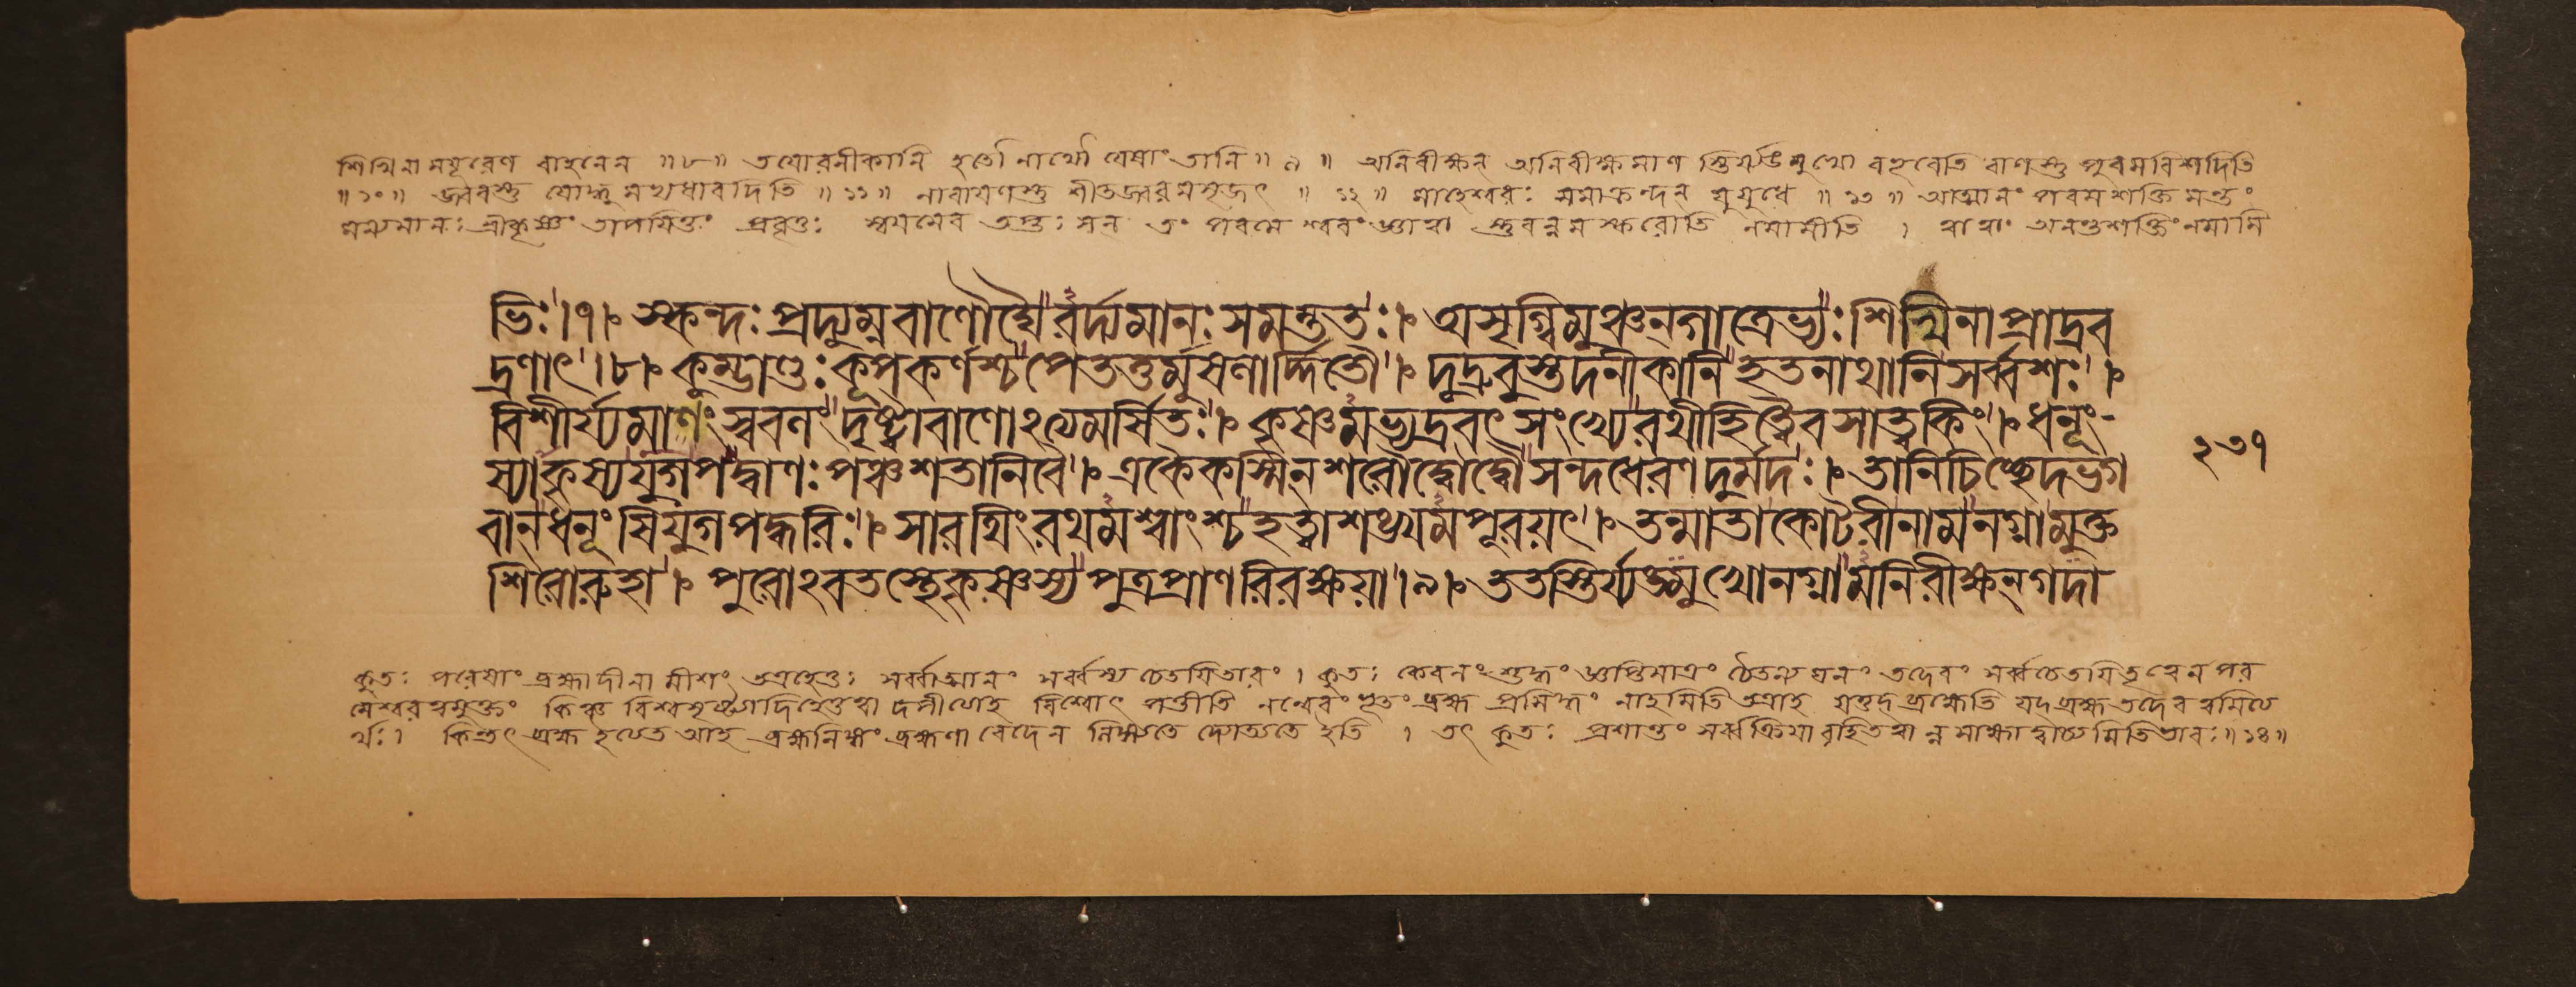 শিখিনা ময়ূরেণ বাহনেন ॥ ৮ ॥ তযোরনীকানি হতৌ নাথৌ যেষাং তানি ॥ ৯ ॥ অনিরীক্ষন্ অনিরীক্ষমাণ স্তির্য্যঙ্মুখো বভূবেতি বাণস্তু পুরমবিশদিতি
॥ ১০ ॥ জ্বরস্তু যোদ্ধুমভ্যধাবদিতি ॥ ১১ ॥ নারাযণস্তু শীতজ্বরমসৃজৎ ॥ ১২ ॥ মাহেশ্বরঃ সমাক্রন্দন্ যুযুধে ॥ ১৩ ॥ আত্মানং পরমশক্তি মন্তং
মন্যমানঃ শ্রীকৃষ্ণং তাপযিতুং প্রবৃত্তঃ স্বযমেব তপ্তঃ সন্ তং পরমেশ্বরং জ্ঞাত্বা স্তুবন্নমস্করোতি নমামীতি । ত্বা ত্বাং অনন্তশক্তিং নমামি
ভিঃ।৭। স্কন্দঃ প্রদ্যুম্নবাণৌঘৈরর্দ্যমানঃ সমন্ততঃ। অসৃগ্বিমুঞ্চন্গাত্রেভ্যঃ শিখিনাপ্রাদ্রব
দ্রণাৎ।৮। কুম্ভাণ্ডঃ কূপকর্ণশ্চ পেততুর্মুসলার্দ্দিতৌ। দুদ্রুবুস্তদনীকানি হতনাথানি সর্ব্বশঃ।
বিশীর্য্যমাণং স্ববলং দৃষ্ট্বা বাণোঽত্যমর্সিতঃ। কৃষ্ণমভ্যদ্রবৎ সংখ্যে রথীহিত্বৈব সাত্বকিং। ধনূং-
স্যাকৃস্য যুগপদ্বাণঃ পঞ্চশতানিবৈ। একৈকস্মিন্ শরৌ দ্বৌ দ্বৌ সন্দধে রণদুর্মদঃ। তানি চিচ্ছেদ ভগ
বান্ ধনূংসি যুগপদ্ধরিঃ। সারথিং রথমশ্বাংশ্চ হত্বা শঙ্খমপূরয়ৎ। তন্মাতা কোটরীনাম নগ্না মুক্ত
শিরোরুহা। পুরোঽবতস্থে কৃষ্ণস্য পুত্রপ্রাণরিরক্ষয়া।৯। ততস্তির্য্যঙ্মুখোনগ্নামনিরীক্ষন্ গদা
২৩৭
কুতঃ পরেষাং ব্রহ্মাদীনামীশং তত্রহেতুঃ সর্ব্বাত্মানং সর্ব্বস্য চেতযিতারং । কুতঃ কেবলং শুদ্ধং জ্ঞপ্তিমাত্রং চৈতন্যঘনং তদেবং সর্ব্বচেতযিতৃত্বেন পর
মেশ্বরত্বমুক্তং কিঞ্চ বিশ্বসৃষ্ট্যাদিহেতুত্বাদপীত্যাহ বিশ্বোৎ পত্তীতি নন্বেবং ভূতং ব্রহ্ম প্রসিদ্ধং নাহমিতি তত্রাহ যত্তদ্ ব্রহ্মেতি যদ্ ব্রহ্ম তদেব ত্বমিত্য
র্থঃ । কিন্তৎ ব্রহ্ম ইত্যত আহ ব্রহ্মলিঙ্গং ব্রহ্মণা বেদেন লিঙ্গ্যতে দ্যোত্যতে ইতি । তৎ কুতঃ প্রশান্তং সর্ব্বক্রিযারহিতত্বান্ন সাক্ষাদ্বাচ্যমিতিভাবঃ ॥ ১৪ ॥